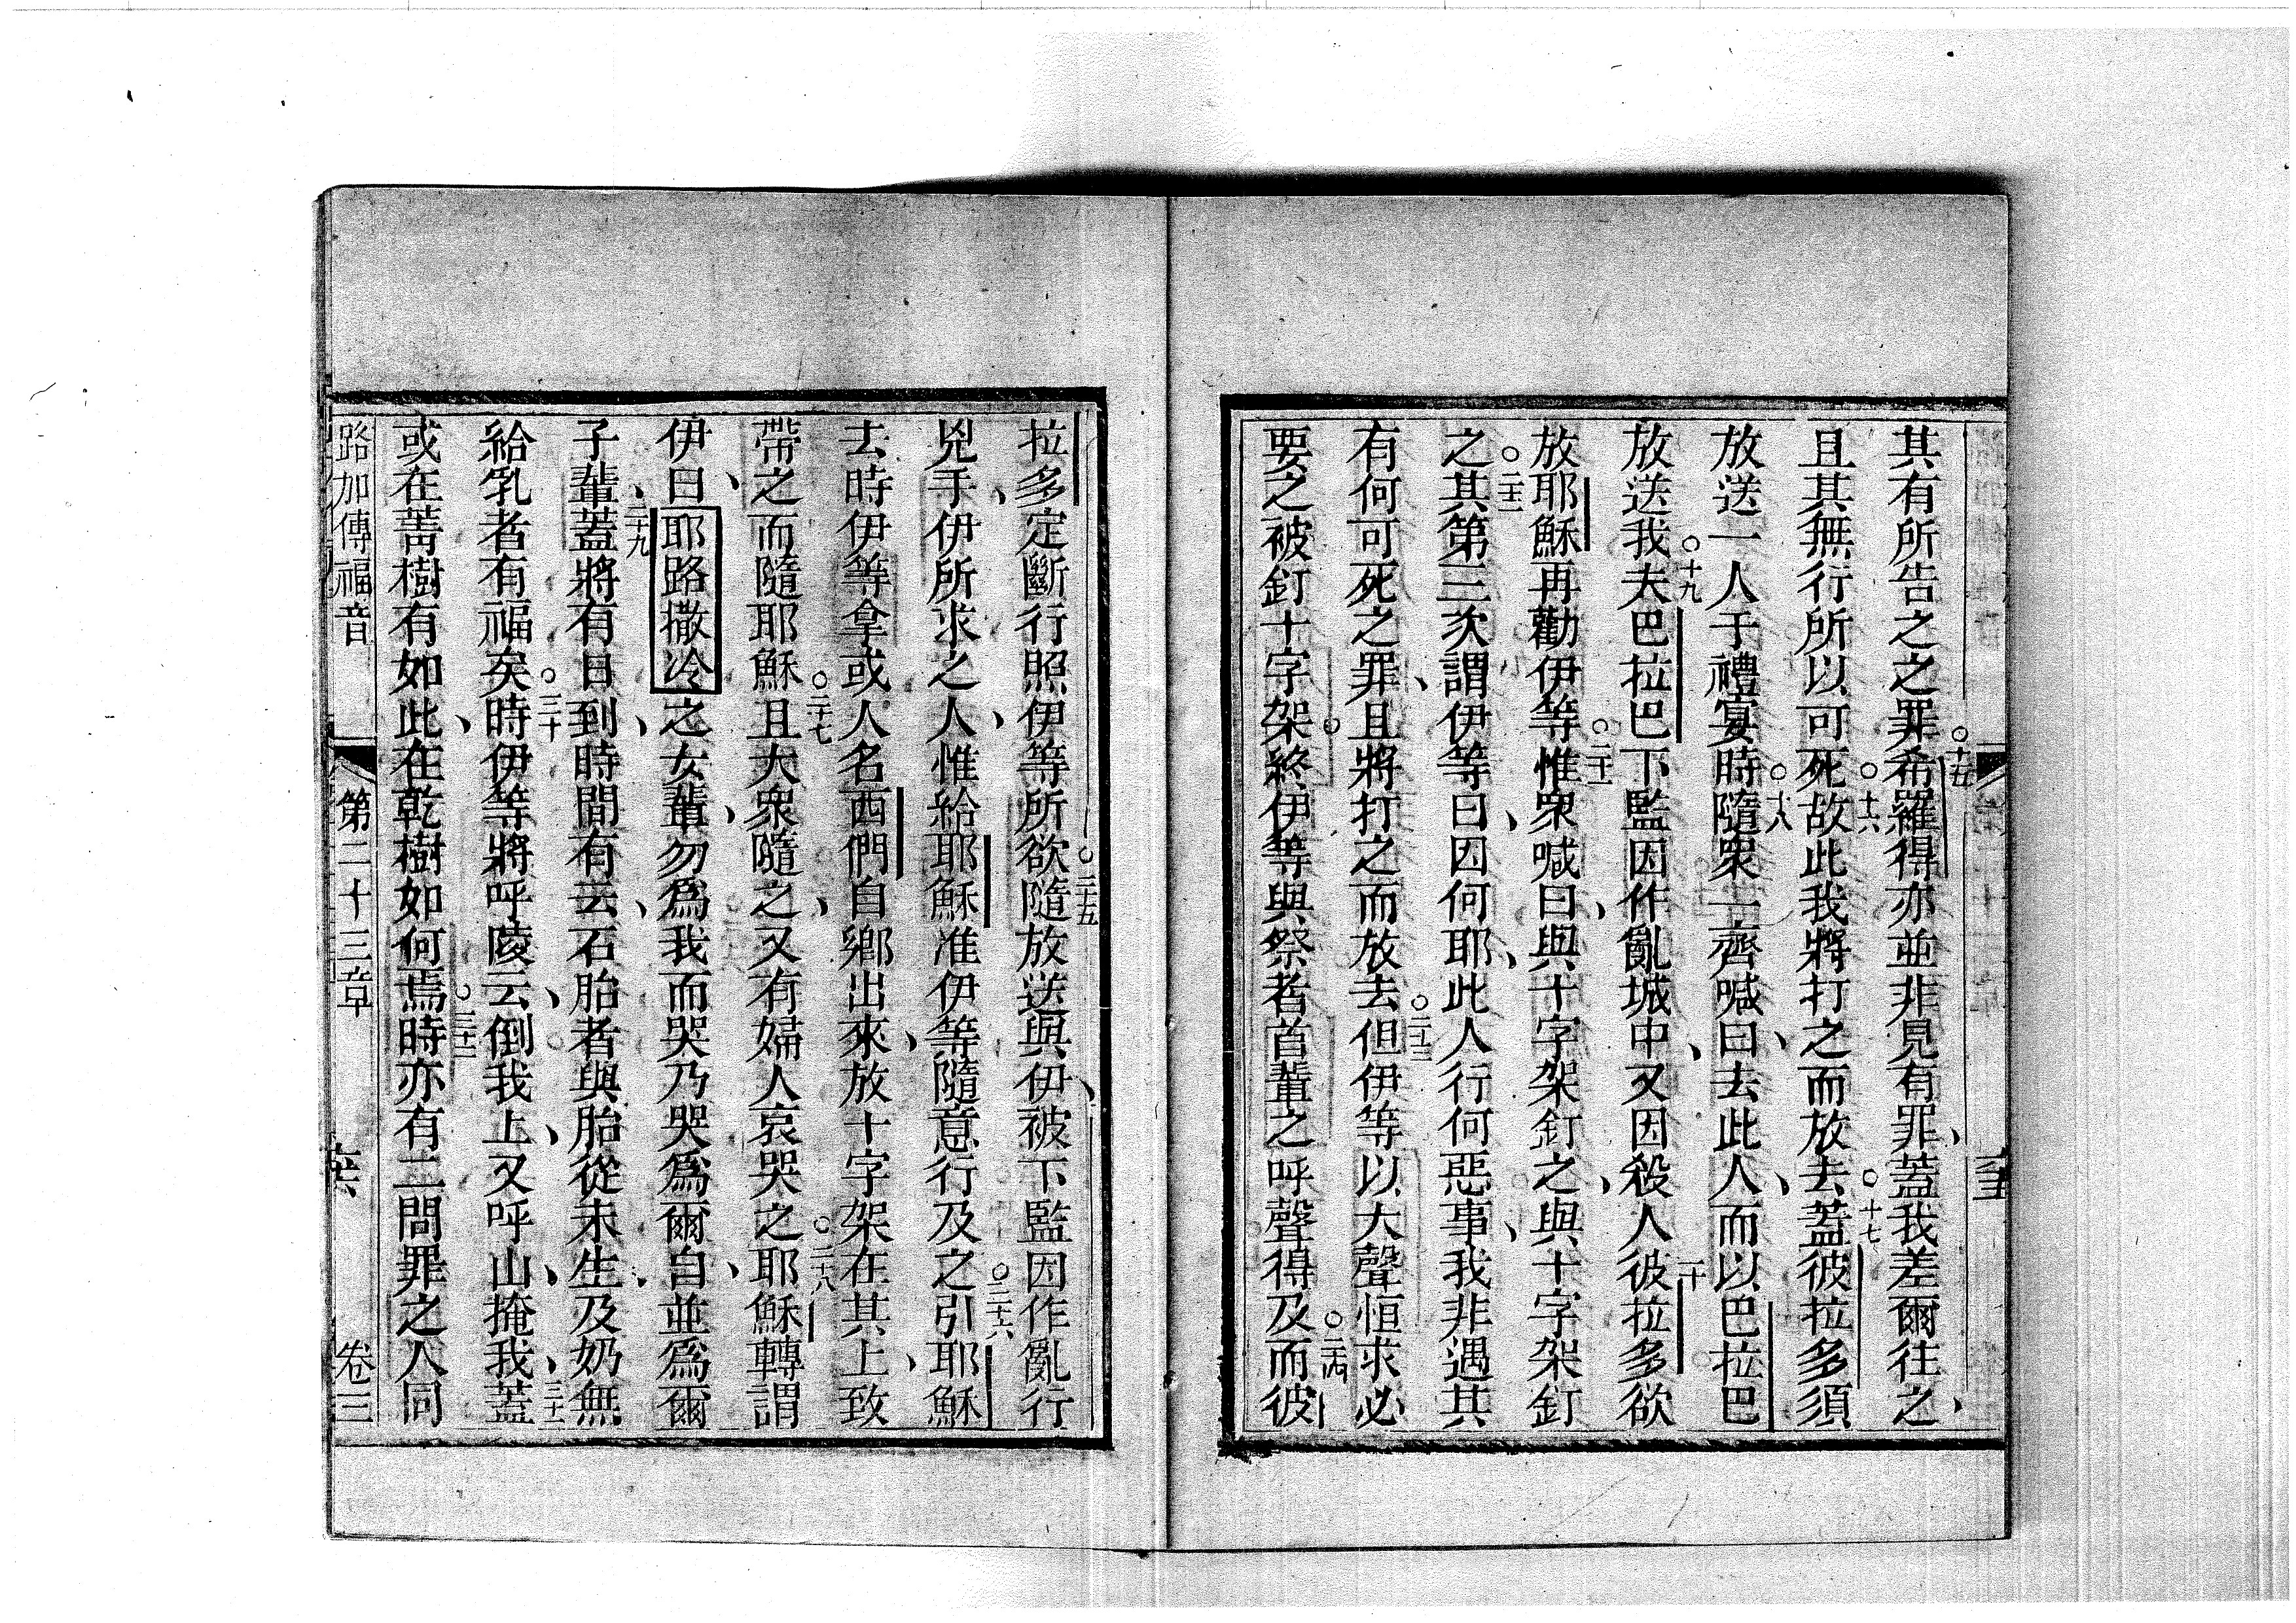 其有所告之之罪○十五希羅得亦並非見有罪、蓋我差爾往之、
且其無行所以可死○十六故此我將打之而放去○十七蓋彼拉多須
放送一人于禮宴時○十八隨衆一齊喊曰、去此人、而以巴拉巴
放送我○十九夫巴拉巴下監因作亂城中、又因殺人二十彼拉多欲
放耶穌再勸伊等○二十一惟衆喊曰、與十字架釘之、與十字架釘
之○二十二其第三次謂伊等曰、因何耶、此人行何惡事、我非遇其
有何可死之罪、且將打之而放去○二十三但伊等以大聲恒求必
要之被釘十字架○終伊等與祭者首輩之呼聲得及○二十四而彼
拉多定斷行照伊等所欲○二十五隨放送與伊、被下監因作亂行
兇手、伊所求之人、惟給耶穌准伊等隨意行及之○二十六引耶穌
去時伊等拿或人名西們自鄉出來、放十字架在其上、致
帶之而隨耶穌○二十七且大衆隨之、又有婦人哀哭之○二十八耶穌轉謂
伊曰、耶路撒冷之女輩、勿爲我而哭乃哭爲爾自、並爲爾
子輩、二十九蓋將有日到、時間有云、石胎者與胎從未生、及奶無
給乳者有福矣○三十時伊等將呼陵云、倒我上、又呼山、掩我、三十一蓋
或在菁樹有如此、在乾樹如何焉○三十二時亦有二問罪之人同
路加傳福音 第二十三章 卷三